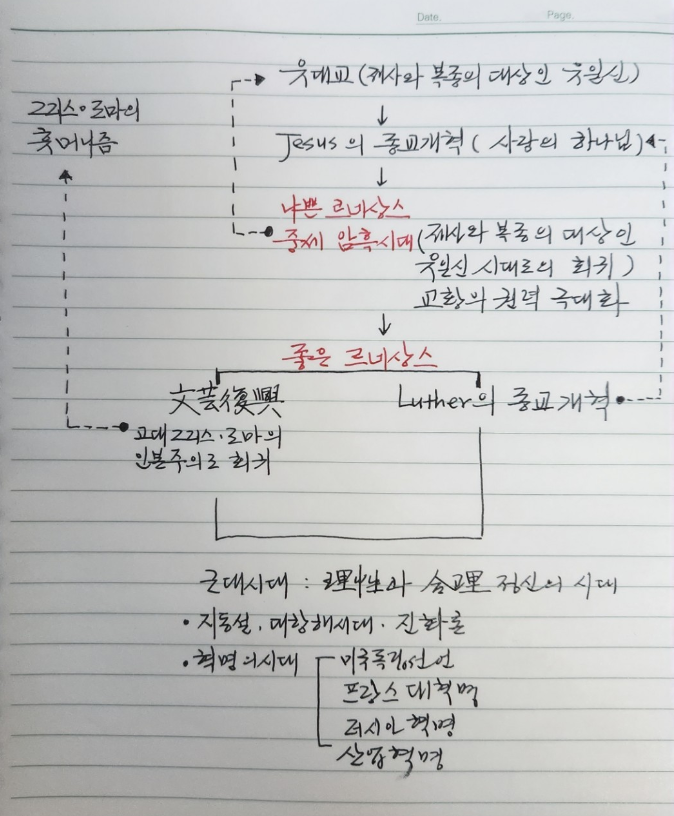 Date.
Page.
유대교 (제사와 복종의 대상인 유일신)
그리스·로마의
휴머니즘
Jesus의 종교개혁 ( 사랑의 하나님 )
나쁜 르네상스
중세 암흑시대 (제사와 복종의 대상인
유일신 시대로의 회귀 )
교황의 권력 극대화
좋은 르네상스
文芸復興
Luther의 종교개혁
고대그리스·로마의
인본주의로 회귀
근대시대 : 理性과 合理 정신의 시대
· 지동설 · 대항해시대 · 진화론
· 혁명의시대
미국독립선언
프랑스 대혁명
러시아 혁명
산업혁명